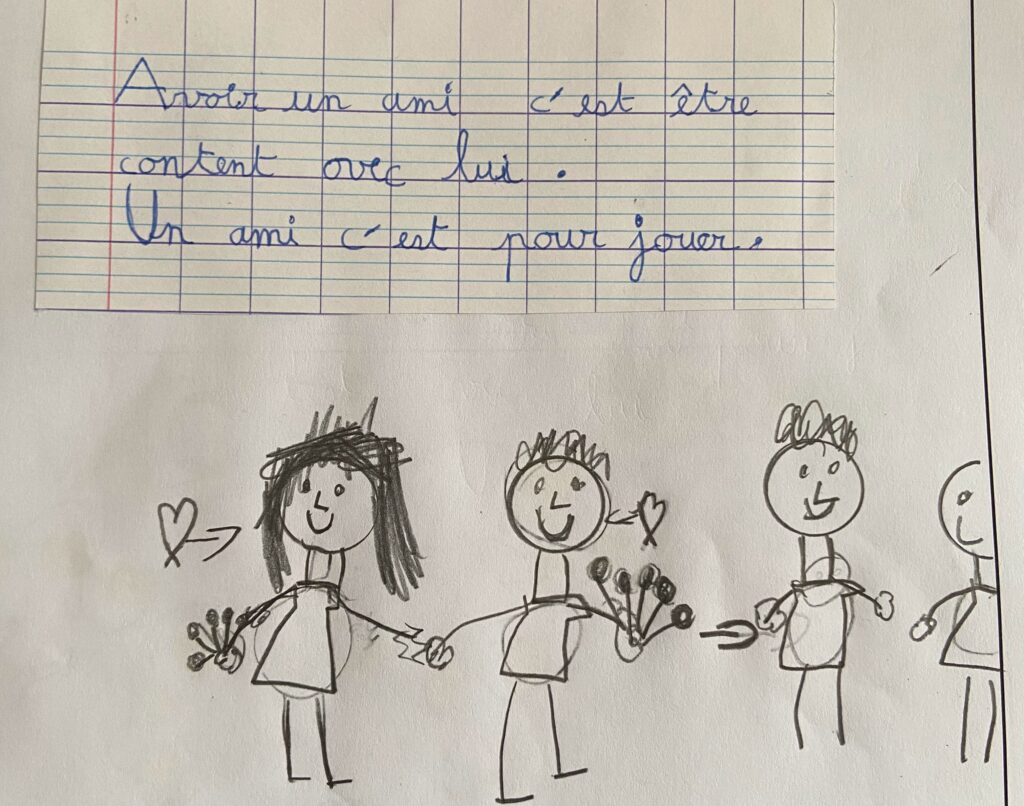 Avoir un ami c'est être
content avec lui.
Un ami c'est pour jouer.